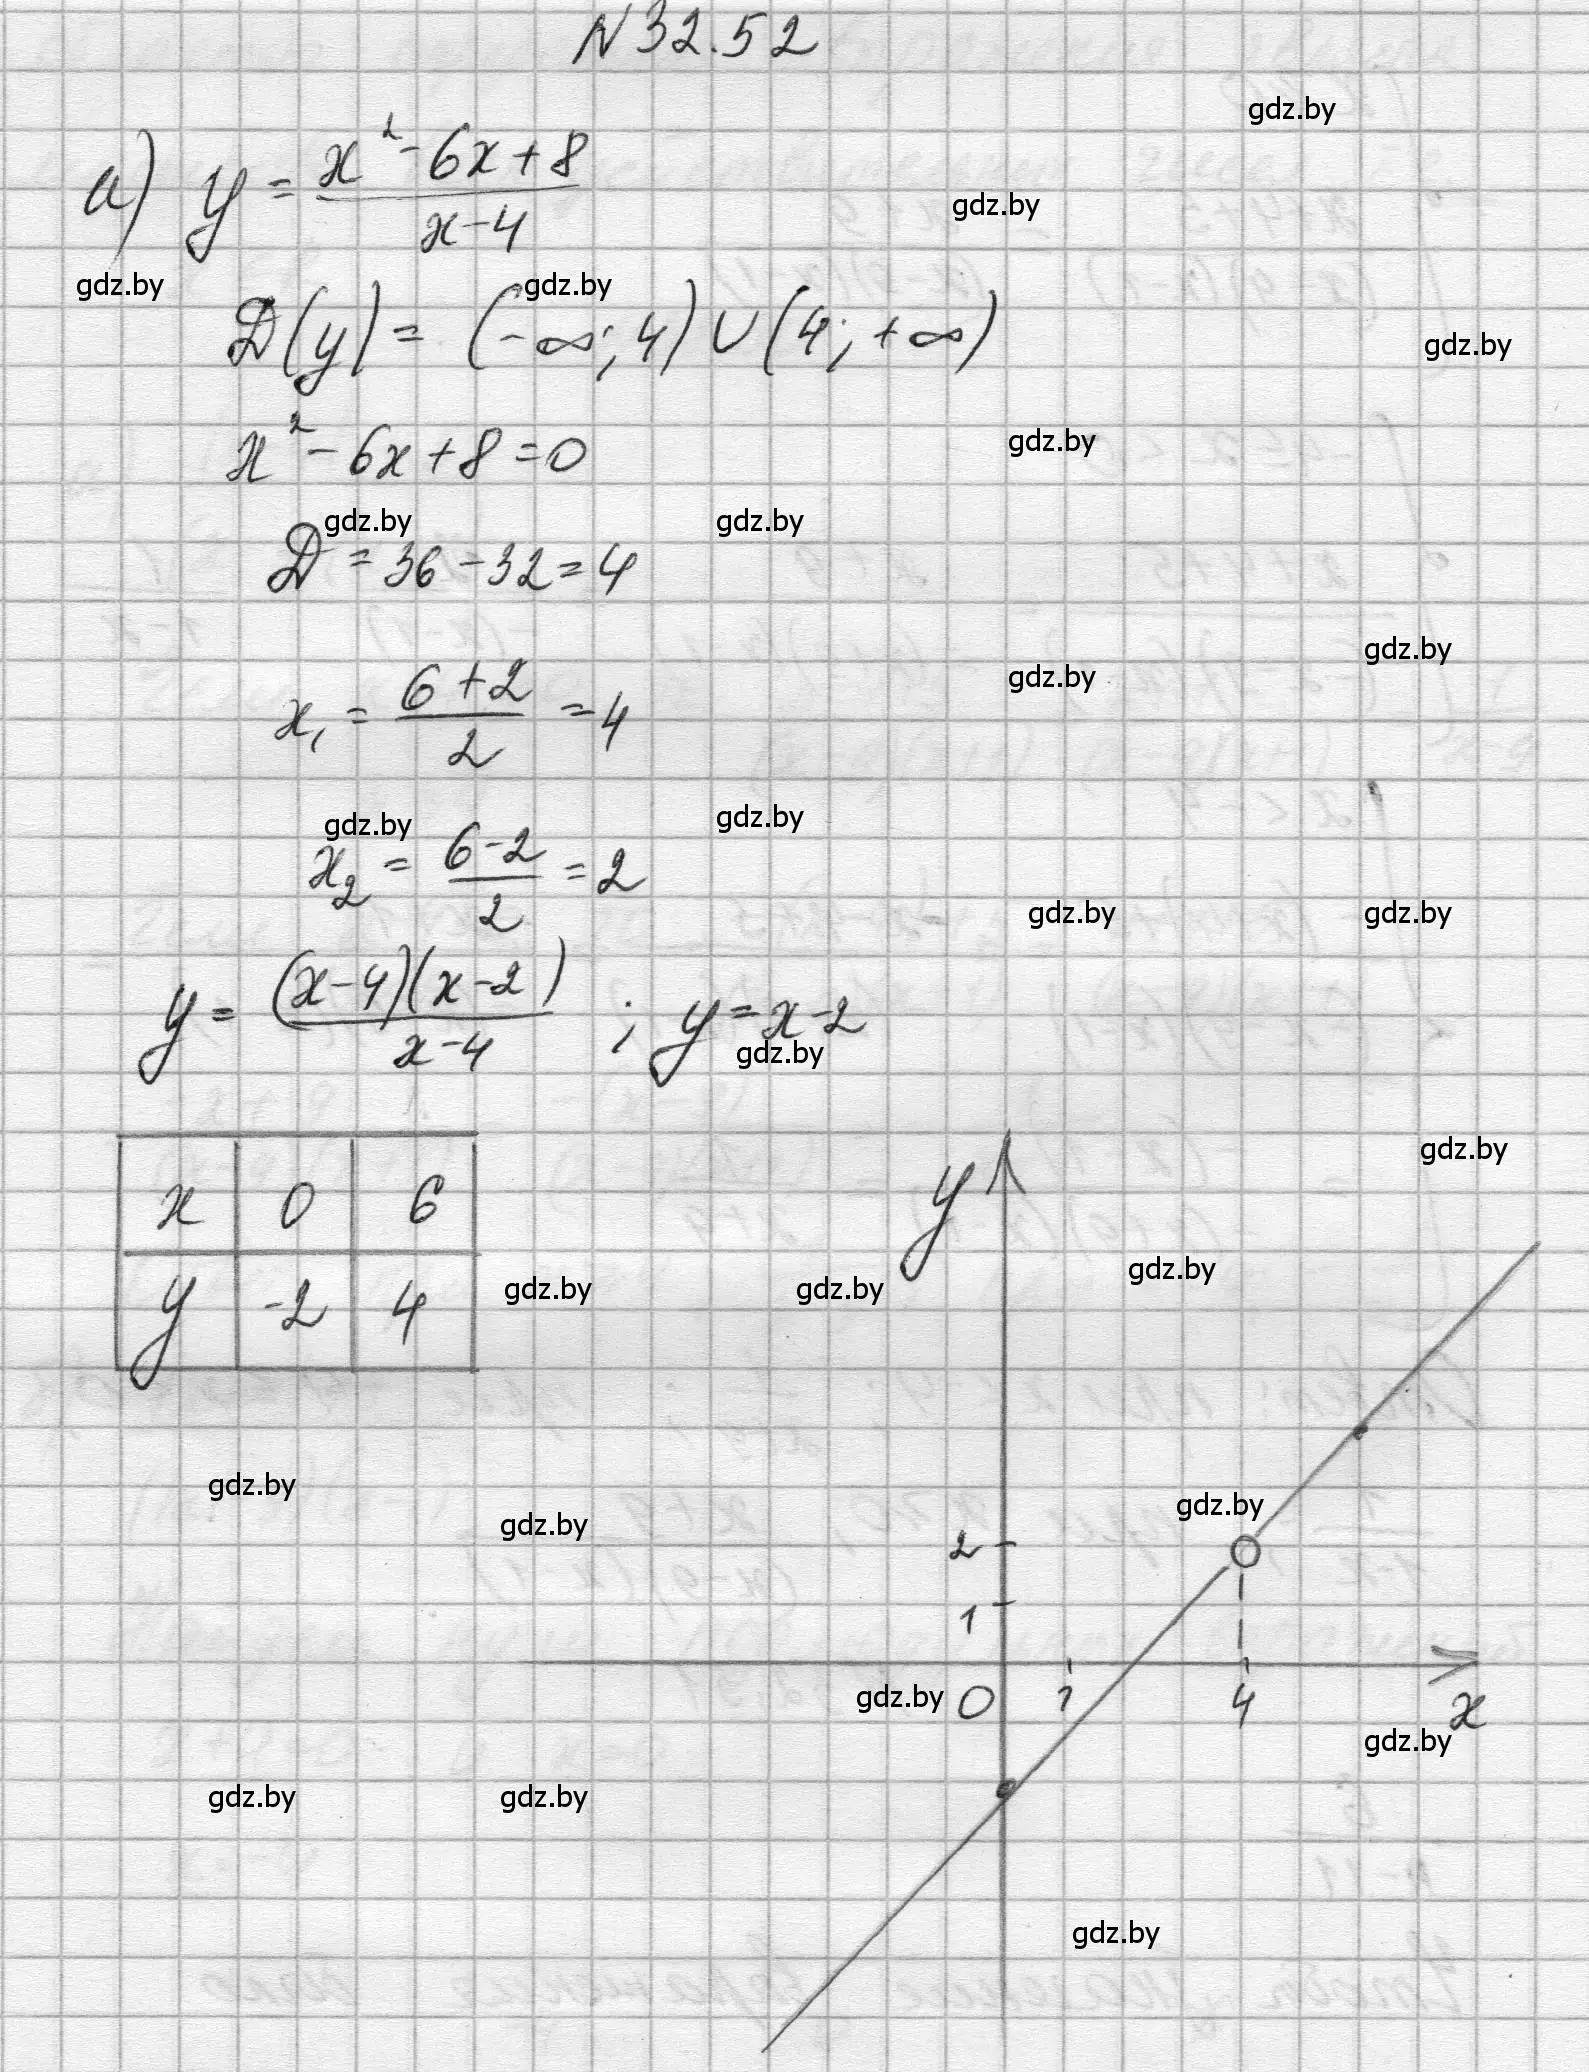 N 32.52
gdz.by
а) y = (x² - 6x + 8)/(x - 4)
gdz.by
gdz.by gdz.by
D(y) = (-∞; 4) ∪ (4; +∞)
gdz.by
x² - 6x + 8 = 0
gdz.by
gdz.by gdz.by
D = 36 - 32 = 4
gdz.by
gdz.by
x₁ = (6 + 2)/2 = 4
gdz.by gdz.by
x₂ = (6 - 2)/2 = 2
gdz.by gdz.by
y = (x - 4)(x - 2)/(x - 4) ; y = x - 2
gdz.by
gdz.by
x 0 6
y -2 4
y
gdz.by
gdz.by gdz.by
gdz.by
gdz.by
gdz.by
2
1
gdz.by 0 1 4 x
gdz.by
gdz.by gdz.by
gdz.by